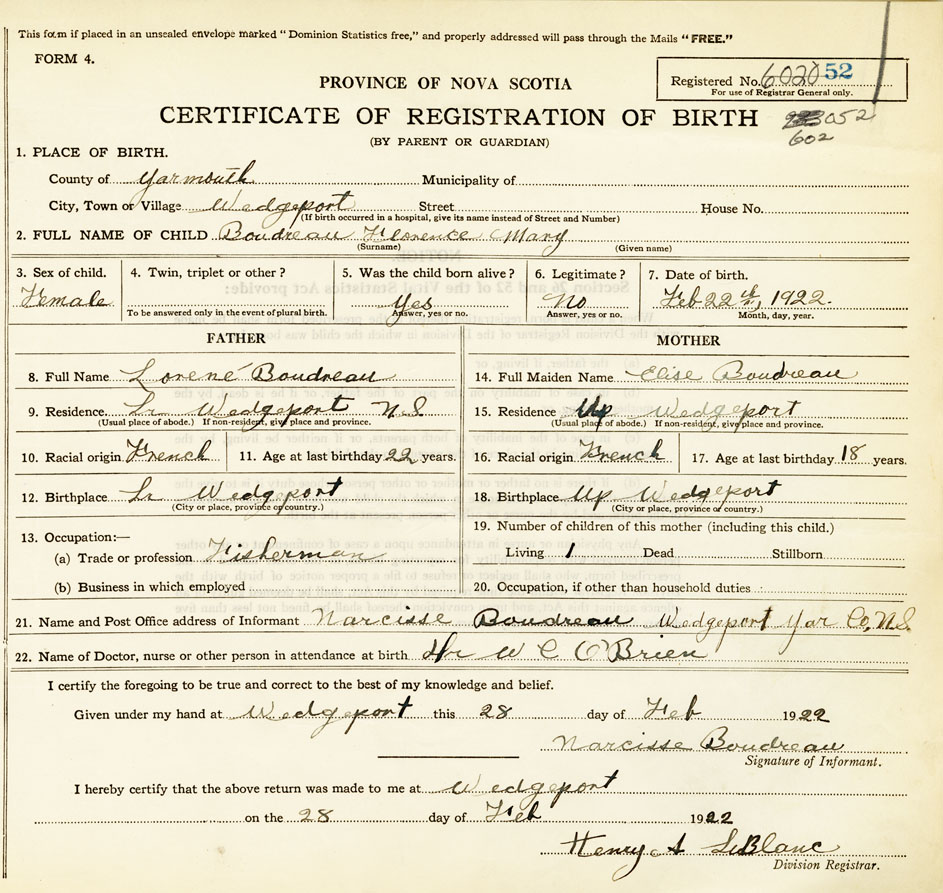 This form if placed in an unsealed envelope marked "Dominion Statistics free," and properly addressed will pass through the Mails "FREE."
FORM 4.
PROVINCE OF NOVA SCOTIA
Registered No. 6020 52
For use of Registrar General only.
CERTIFICATE OF REGISTRATION OF BIRTH
3052
602
(BY PARENT OR GUARDIAN)
1. PLACE OF BIRTH.
County of Yarmouth Municipality of
City, Town or Village Wedgeport Street House No.
(If birth occurred in a hospital, give its name instead of Street and Number)
2. FULL NAME OF CHILD Boudreau Florence Mary
(Surname) (Given name)
3. Sex of child. 4. Twin, triplet or other? 5. Was the child born alive? 6. Legitimate? 7. Date of birth.
Female Yes No Feb 22th, 1922.
To be answered only in the event of plural birth. Answer, yes or no. Answer, yes or no. Month, day, year.
FATHER MOTHER
8. Full Name Lorené Boudreau 14. Full Maiden Name Elise Boudreau
9. Residence Lr Wedgeport N.S 15. Residence Up Wedgeport
(Usual place of abode.) If non-resident, give place and province. (Usual place of abode.) If non-resident, give place and province.
10. Racial origin French 11. Age at last birthday 22 years. 16. Racial origin French 17. Age at last birthday 18 years.
12. Birthplace Lr Wedgeport 18. Birthplace Up Wedgeport
(City or place, province or country.) (City or place, province or country.)
13. Occupation:— 19. Number of children of this mother (including this child.)
(a) Trade or profession Fisherman Living 1 Dead Stillborn
(b) Business in which employed 20. Occupation, if other than household duties
21. Name and Post Office address of Informant Narcisse Boudreau Wedgeport Yar Co, N.S.
22. Name of Doctor, nurse or other person in attendance at birth Dr W C O'Brien
I certify the foregoing to be true and correct to the best of my knowledge and belief.
Given under my hand at Wedgeport this 28 day of Feb 1922
Narcisse Boudreau
Signature of Informant.
I hereby certify that the above return was made to me at Wedgeport
on the 28 day of Feb 1922
Henry A LeBlanc
Division Registrar.